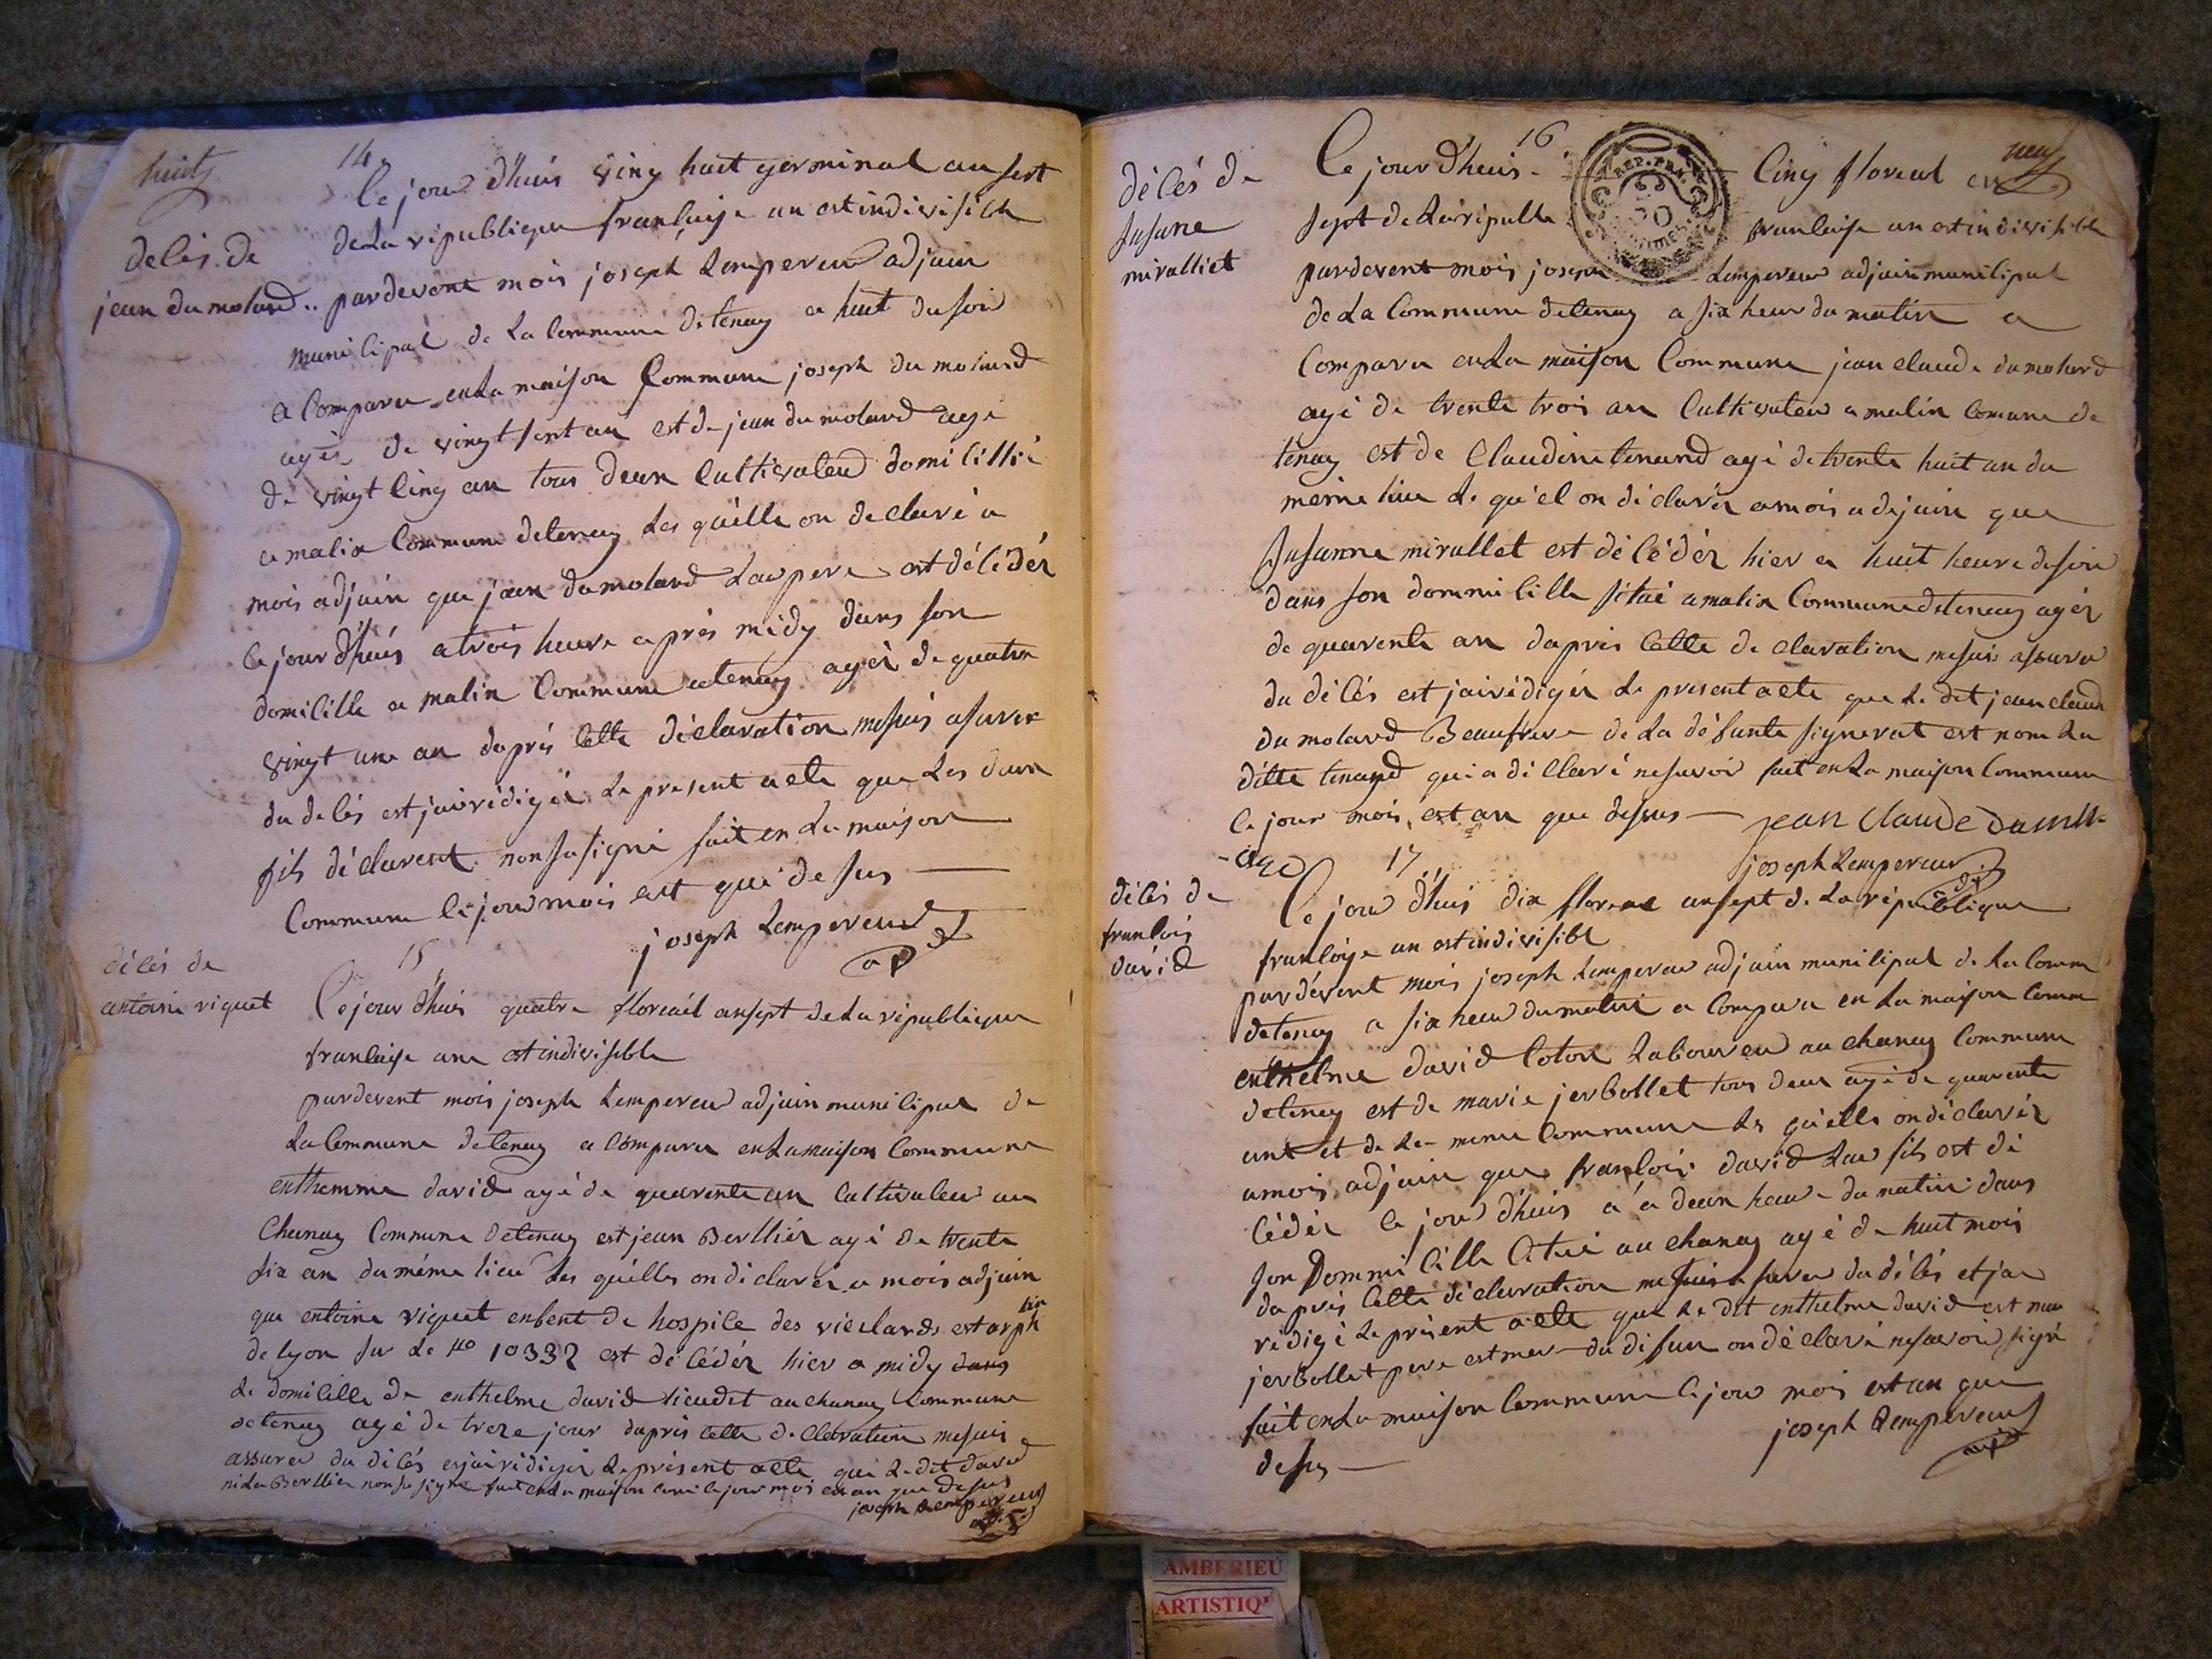 huit
14
Ce jour d'huis ving huit germinal an sert
de La république française un est indivisible
decés de
jean du molard .. pardevent mois joseph Lempereur adjuin
municipal de La Commune de tenay a huit du soir
a Comparu en La maison Commune joseph du molard
agés de vingt sept an est de jean du molard age
de vingt cinq an tous deux Cultivateur domicillié
a malix Commune de tenay Les quélle on declaré a
mois adjuin que jean du molard Leur pere est décédér
ce jour d'huis a trois heure après midy dans son
domicille a malix Commune de tenay agér de quatre
vingt une an daprés cette déclaration me suis asurer
du decés est jai rédigér Le present acte que Les deux
fils déclarent non su signé fait en La maison
Commune Ce jour mois ect que de sus
joseph Lempereur
adj
15
décés de
antoine viquet
Ce jour d'huis quatre floréail an sept de La république
française une est indivisible
pardevent mois joseph Lempereur adjuin municipal de
La Commune de tenay a Comparu en La maison Commune
enthemme david agé de quarente an Cultivateur au
Chanay Commune de tenay est jean Berlliér agé de trente
six an du méme lieu Les quélles on diclarér a mois adjuin
que entoine viquet enbent de hospice des vieclards est orphelin
de lyon su Le No 10332 est décédér hier a midy dans
Le domicille de enthelme david lieudet au chanay Commune
de tenay agé de treze jour daprés cette déclération me suis
assurer du décés es jai rédigér Le présent acte que Le dit david
ni Le Berllier non su signe fait en La maison Comi ce jour mois en an que desus
joseph Lempereur
adj
neuf
16
décés de
susane
miralliet
Ce jour d'heuis Cinq floreal an
REP. FRA.
sept de La républle française un est indivisible
pardevent mois joseph Lempereur adjuin municipal
de La Commune de tenay a six heur du matin a
Comparu en La maison Commune jean claude du molard
agé de trente trois an Cultivateur a malix Comune de
tenay est de Claudine tenand agé de trente huit an du
meme lieu Le qu'el on déclarér a mois adejuin que
Susanne mirallet est décédér hier a huit heure de soir
dans son dommicille situé a malix Commune de tenay agér
de quarente an dapres Cette declaration me suis assurer
du décés est jai rédigér Le present acte que Le dit jean claud
du molard Beaufrere de La défunte signerat est none La
ditte tenand qui a diclaré ne savoir fait en La maison Commune
Ce jour mois est an que dessus jean claude dumll-
-ard
joseph Lempereur
adj
17
décés de
francois
david
Ce jour d'huis dix floreal an sept de La république
françoise un est indivisible
pardévent mois joseph Lempereur adjuin municipal de La Comm
de tenay a six heur du matin a Comparu en La maison Comm
enthelme david Coton Laboureu au chanay Commune
de tenay est de marie jerbollet tous deux agé de quarente
ant et de La meme Commune Les quélle on déclarér
a mois adjuin que francois david Leur fils est dé
cédér Ce jour d'huis a a deux heure du matin dans
son Dommicille Citué au chanay agé de huit mois
daprés Cette déclaration me suis asurer du décés et jai
rédigé Le présent acte que Le dit enthelme david est mar
jerbollet pere est mere du disun on déclaré ne savoir signé
fait en La maison Commune Ce jour mois est an que
desus
joseph Lempereur
adj
AMBERIEU
ARTISTIQ'